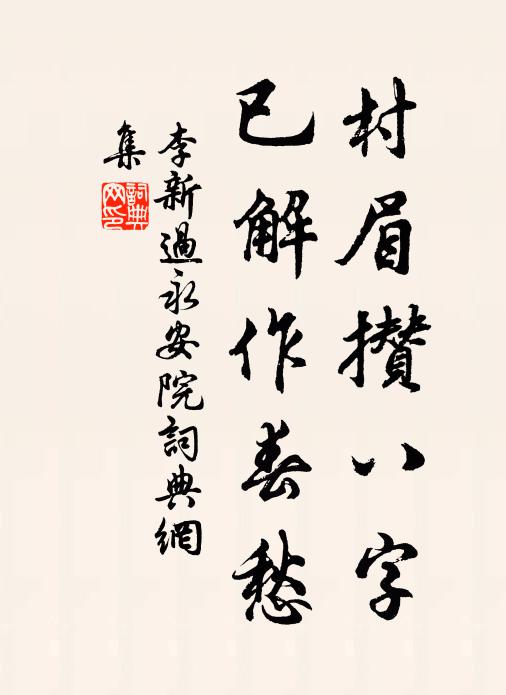 村眉攢八字
已解作春愁
李新過永安院詞典網
集
詞典
网印